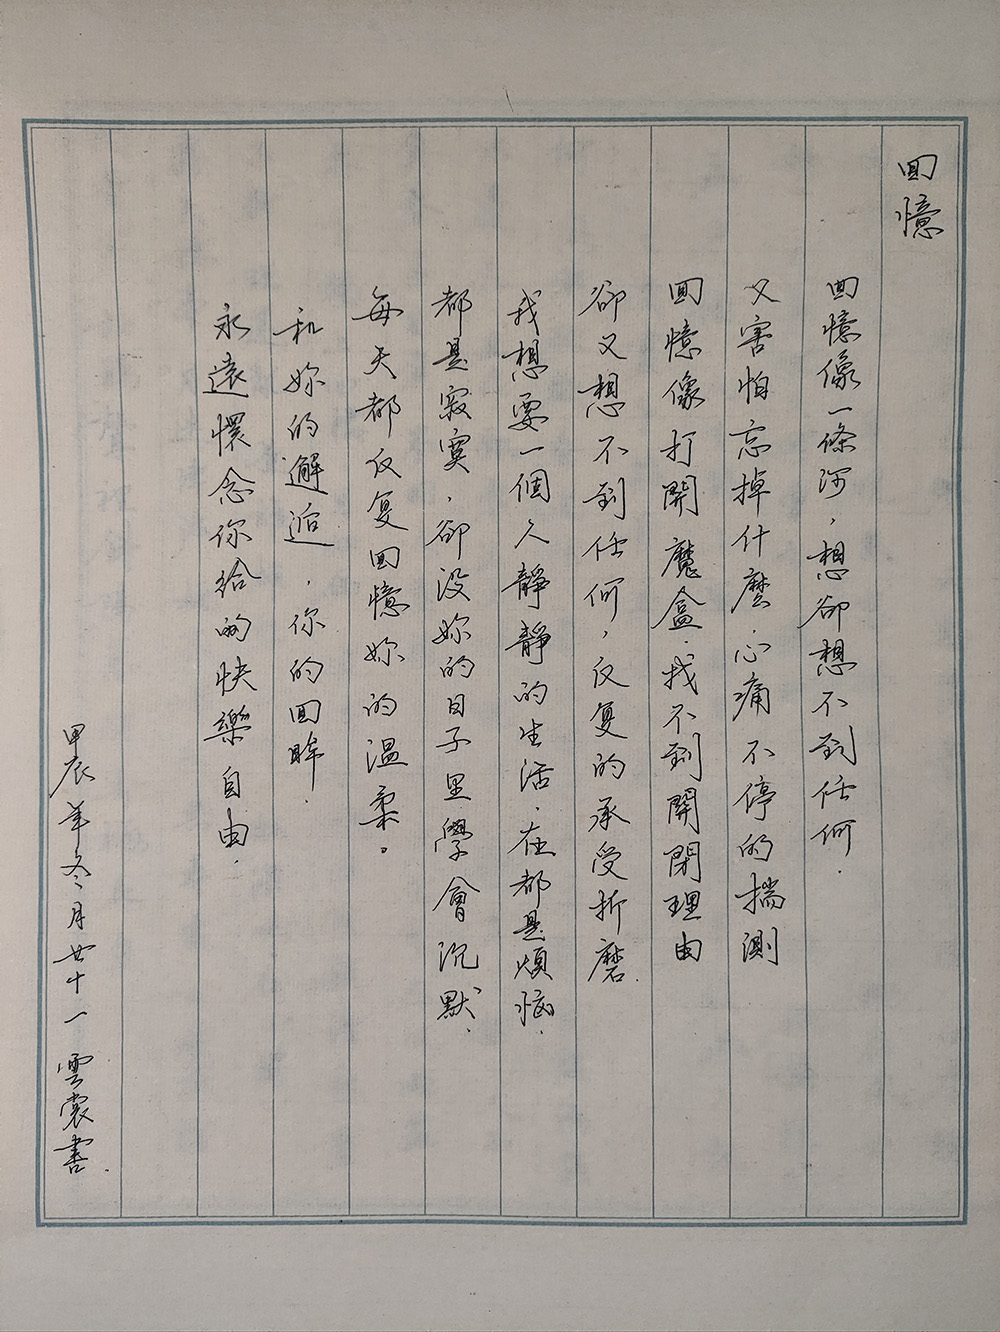 回憶
回憶像一條河，想卻想不到任何．
又害怕忘掉什麼．心痛不停的揣測
回憶像打開魔盒．找不到開閉理由
卻又想不到任何，反复的承受折磨．
我想要一個人靜靜的生活．在都是煩惱．
都是寂寞．卻沒妳的日子里學會沉默．
每天都反复回憶妳的溫柔。
和妳的邂逅．你的回眸．
永遠懷念你給的快樂自由．
甲辰年冬月廿十一 雲裳書．